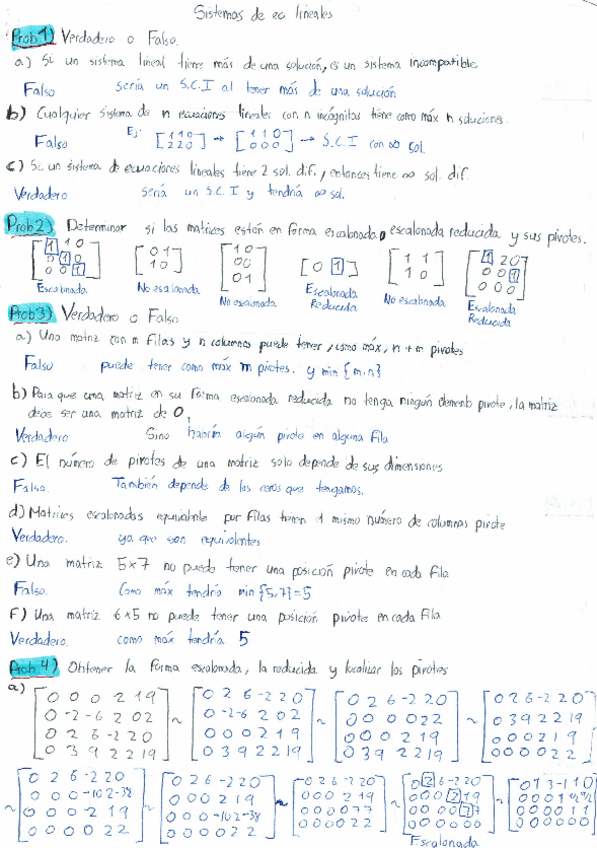 Sistemas de ec lineales
Prob 1) Verdadero o Falso.
a) Si un sistema lineal tiene más de una solución, es un sistema incompatible
Falso sería un S.C.I al tener más de una solución
b) Cualquier sistema de n ecuaciones lineales con n incógnitas tiene como máx n soluciones.
Falso Ej: [1 1 0 / 2 2 0] → [1 1 0 / 0 0 0] → S.C.I con ∞ sol.
c) Si un sistema de ecuaciones lineales tiene 2 sol. dif., entonces tiene ∞ sol. dif.
Verdadero sería un S.C.I y tendría ∞ sol.
Prob 2) Determinar si las matrices están en forma escalonada o escalonada reducida y sus pivotes.
[1 1 0 / 0 1 0 / 0 0 1] [0 1 / 1 0] [1 0 / 0 0 / 0 1] [0 1] [1 1 / 1 0] [1 2 0 / 0 0 1 / 0 0 0]
Escalonada No escalonada No escalonada Escalonada Reducida No escalonada Escalonada Reducida
Prob 3) Verdadero o Falso
a) Una matriz con m filas y n columnas puede tener, como máx, n + m pivotes
Falso puede tener como máx m pivotes. y min {m.n}
b) Para que una matriz en su forma escalonada reducida no tenga ningún elemento pivote, la matriz
debe ser una matriz de 0,
Verdadero Sino habría algún pivote en alguna fila
c) El número de pivotes de una matriz solo depende de sus dimensiones
Falso. También depende de los ceros que tengamos.
d) Matrices escalonadas equivalente por filas tienen el mismo número de columnas pivote
Verdadero. ya que son equivalentes
e) Una matriz 5x7 no puede tener una posición pivote en cada fila
Falso. Como máx tendría min {5,7} = 5
F) Una matriz 6x5 no puede tener una posición pivote en cada fila
Verdadero. como máx tendría 5
Prob. 4) Obtener la forma escalonada, la reducida y localizar los pivotes
a) [0 0 0 2 1 9 / 0 -2 -6 2 0 2 / 0 2 6 -2 2 0 / 0 3 9 2 2 19] ~ [0 2 6 -2 2 0 / 0 -2 -6 2 0 2 / 0 0 0 2 1 9 / 0 3 9 2 2 19] ~ [0 2 6 -2 2 0 / 0 0 0 0 2 2 / 0 0 0 2 1 9 / 0 3 9 2 2 19] ~ [0 2 6 -2 2 0 / 0 3 9 2 2 19 / 0 0 0 2 1 9 / 0 0 0 0 2 2]
~ [0 2 6 -2 2 0 / 0 0 0 -10 2 -38 / 0 0 0 -2 1 9 / 0 0 0 0 2 2] ~ [0 2 6 -2 2 0 / 0 0 0 2 1 9 / 0 0 0 -10 2 -38 / 0 0 0 0 2 2] ~ [0 2 6 -2 2 0 / 0 0 0 2 1 9 / 0 0 0 0 7 7 / 0 0 0 0 2 2] ~ [0 2 6 -2 2 0 / 0 0 0 2 1 9 / 0 0 0 0 7 7 / 0 0 0 0 0 0] ~ [0 1 3 -1 1 0 / 0 0 0 1 1/2 9/2 / 0 0 0 0 1 1 / 0 0 0 0 0 0]
Escalonada